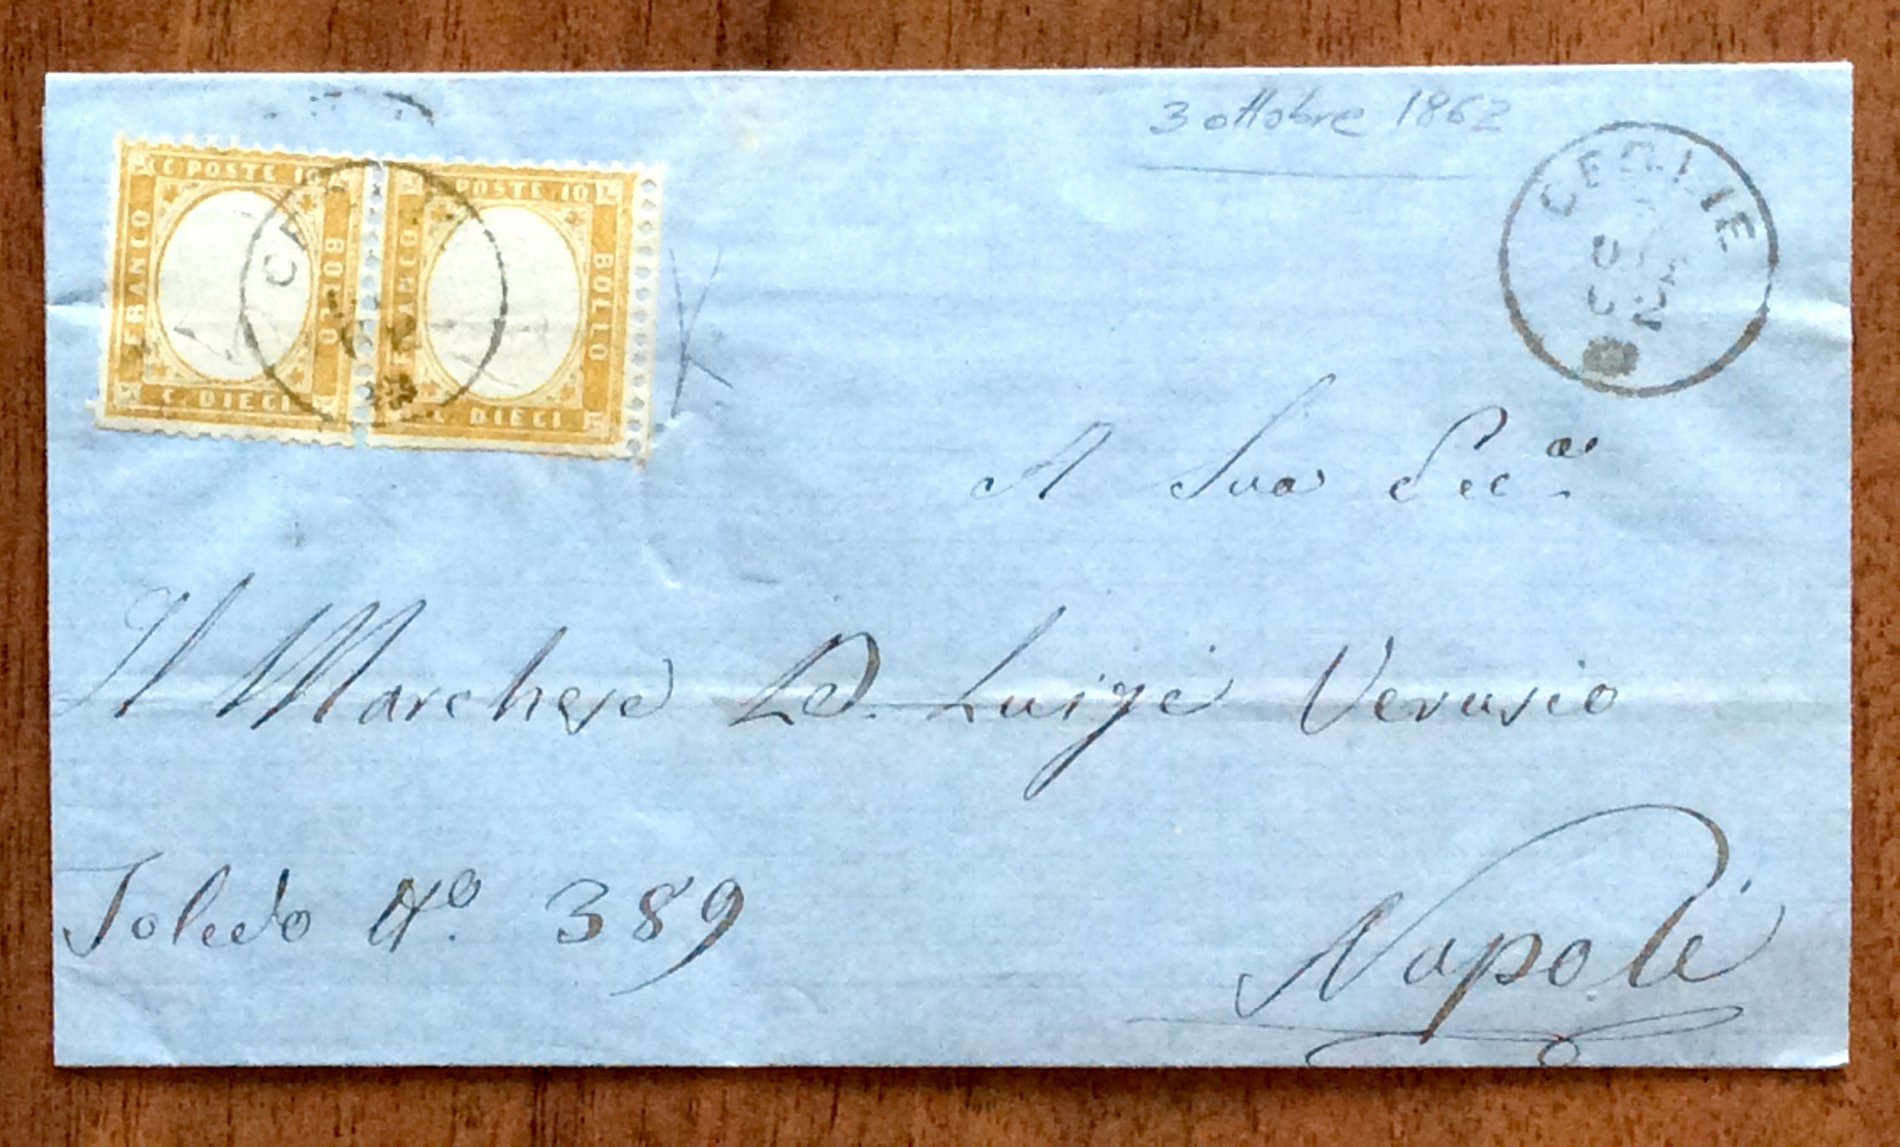 3 ottobre 1862
C. POSTE 10
FRANCO
BOLLO
C. DIECI
POSTE 10
FRANCO
BOLLO
C. DIECI
62
A Sua Ecc.za
Il Marchese D. Luigi Verusio
Toledo No. 389
Napoli